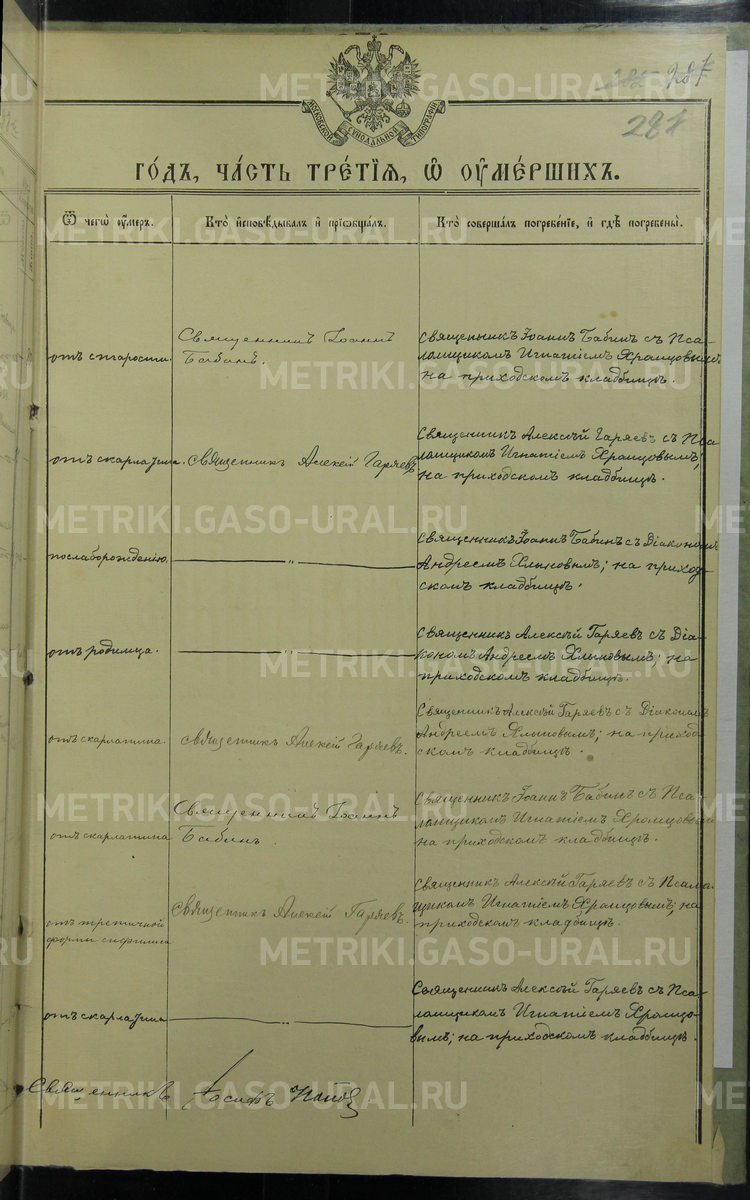 287
МОСКОВСКОЙ СѴНОДАЛЬНОЙ ТИПОГРАФІИ
281
ГО́ДЪ, ЧА́СТЬ ТРЕ́ТІѦ, Ѡ҆ ОУ҆МЕ́РШИХЪ.
Ѿ чегѡ̀ оу҆́меръ.
Кто̀ и҆сповѣ́дывалъ и҆ прїѡбща́лъ.
Кто̀ соверша́лъ погребе́нїе, и҆ гдѣ̀ погребены̀.
отъ старости.
Священникъ Іоаннъ
Бабинъ.
Священникъ Іоаннъ Бабинъ съ Пса-
ломщикомъ Игнатіемъ Храмцовымъ
на приходскомъ кладбищѣ.
отъ скарлатина.
Священникъ Алексѣй Гаряевъ
Священникъ Алексѣй Гаряевъ съ Пса-
ломщикомъ Игнатіемъ Храмцовымъ;
на приходскомъ кладбищѣ.
послаборожденію
— " —
Священникъ Іоаннъ Бабинъ съ Діакономъ
Андреемъ Хлыновымъ; на приход-
скомъ кладбищѣ.
отъ родимца.
— " —
Священникъ Алексѣй Гаряевъ съ Діа-
кономъ Андреемъ Хлыновымъ, на
приходскомъ кладбищѣ.
отъ скарлатина.
Священникъ Алексѣй Гаряевъ.
Священникъ Алексѣй Гаряевъ съ Діакономъ
Андреемъ Хлыновымъ; на приход-
скомъ кладбищѣ.
отъ скарлатина
Священникъ Іоаннъ
Бабинъ.
Священникъ Іоаннъ Бабинъ съ Пса-
ломщикомъ Игнатіемъ Храмцовымъ
на приходскомъ кладбищѣ.
отъ третичной
формы сифилиса
Священникъ Алексѣй Гаряевъ.
Священникъ Алексѣй Гаряевъ съ Псалом-
щикомъ Игнатіемъ Храмцовымъ; на
приходскомъ кладбищѣ.
отъ скарлатина
— " —
Священникъ Алексѣй Гаряевъ съ Пса-
ломщикомъ Игнатіемъ Храмцо-
вымъ; на приходскомъ кладбищѣ.
Священникъ Іосифъ
METRIKI.GASO-URAL.RU
METRIKI.GASO-URAL.RU
METRIKI.GASO-URAL.RU
METRIKI.GASO-URAL.RU
METRIKI.GASO-URAL.RU
METRIKI.GASO-URAL.RU
METRIKI.GASO-URAL.RU
METRIKI.GASO-URAL.RU